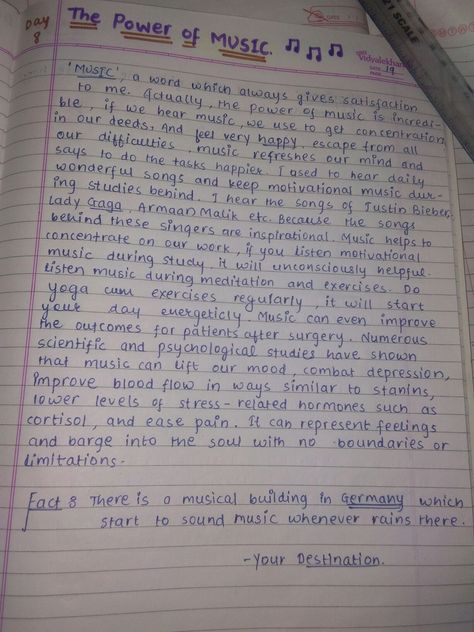 Day 8
The Power of MUSIC.
Vidyalekhan
DATE
PAGE 19
21 SCALE
'MUSIC', a word which always gives satisfaction
to me. Actually, the power of music is incredi-
ble, if we hear music, we use to get concentration
in our deeds, And feel very happy, escape from all
our difficulties, music refreshes our mind and
says to do the tasks happier. I used to hear daily
wonderful songs and keep motivational music dur-
ing studies behind. I hear the songs of Justin Bieber,
lady Gaga, Armaan Malik etc. Because the songs
behind these singers are inspirational. Music helps to
concentrate on our work, if you listen motivational
music during study, it will unconsciously helpful.
listen music during meditation and exercises. Do
yoga cum exercises regularly, it will start
your day energeticly. Music can even improve
the outcomes for patients after surgery. Numerous
scientific and psychological studies have shown
that music can lift our mood, combat depression,
improve blood flow in ways similar to stanins,
lower levels of stress-related hormones such as
cortisol, and ease pain. It can represent feelings
and barge into the soul with no boundaries or
limitations.
Fact 8 There is a musical building in Germany which
start to sound music whenever rains there.
-Your Destination.